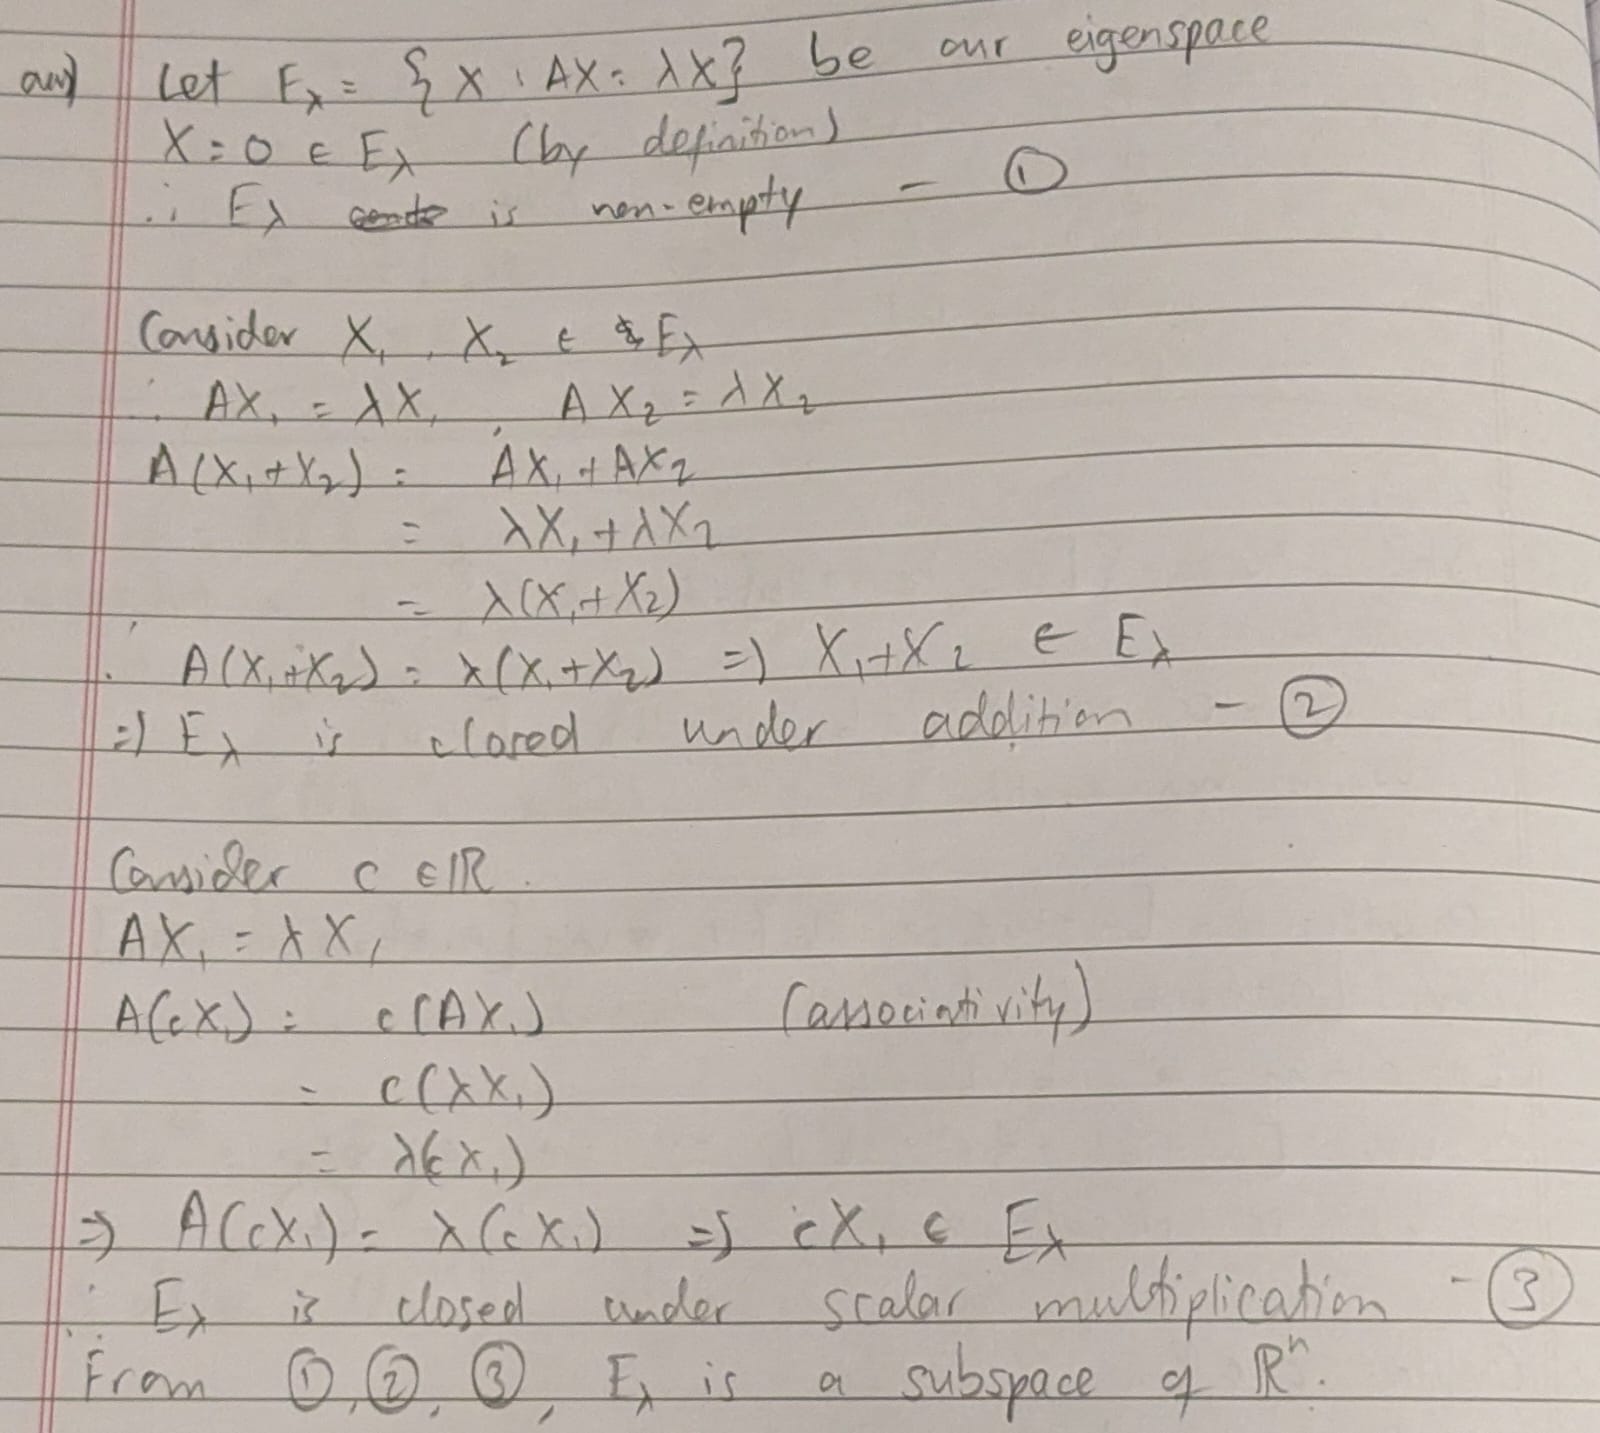 ans) Let Eλ = { X : AX = λX} be our eigenspace
X = 0 ∈ Eλ (by definition)
∴ Eλ is non-empty - ①
Consider X₁, X₂ ∈ Eλ
∴ AX₁ = λX₁, AX₂ = λX₂
A(X₁+X₂) = AX₁ + AX₂
= λX₁ + λX₂
= λ(X₁+X₂)
∴ A(X₁+X₂) = λ(X₁+X₂) => X₁+X₂ ∈ Eλ
=> Eλ is closed under addition - ②
Consider c ∈ ℝ.
AX₁ = λX₁
A(cX₁) = c(AX₁) (associativity)
= c(λX₁)
= λ(cX₁)
=> A(cX₁) = λ(cX₁) => cX₁ ∈ Eλ
∴ Eλ is closed under scalar multiplication - ③
∴ From ①, ②, ③, Eλ is a subspace of ℝⁿ.